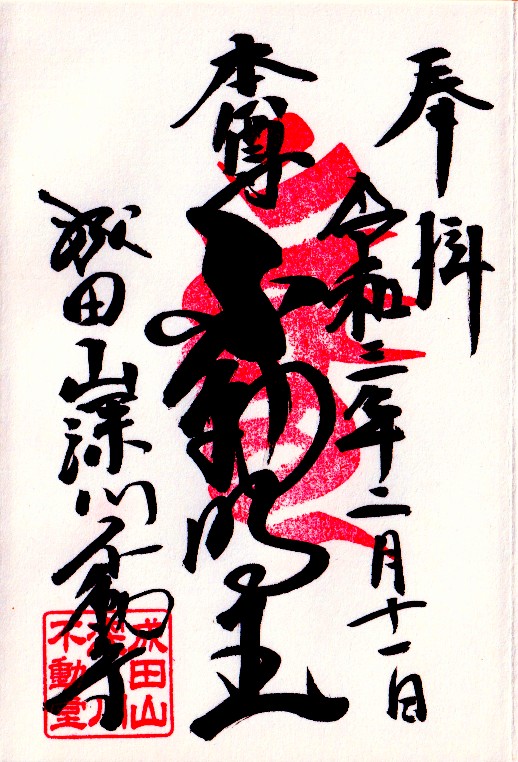 奉拝
令和三年二月十一日
本尊
不動明王
成田山深川不動堂
成田山
深川
不動堂